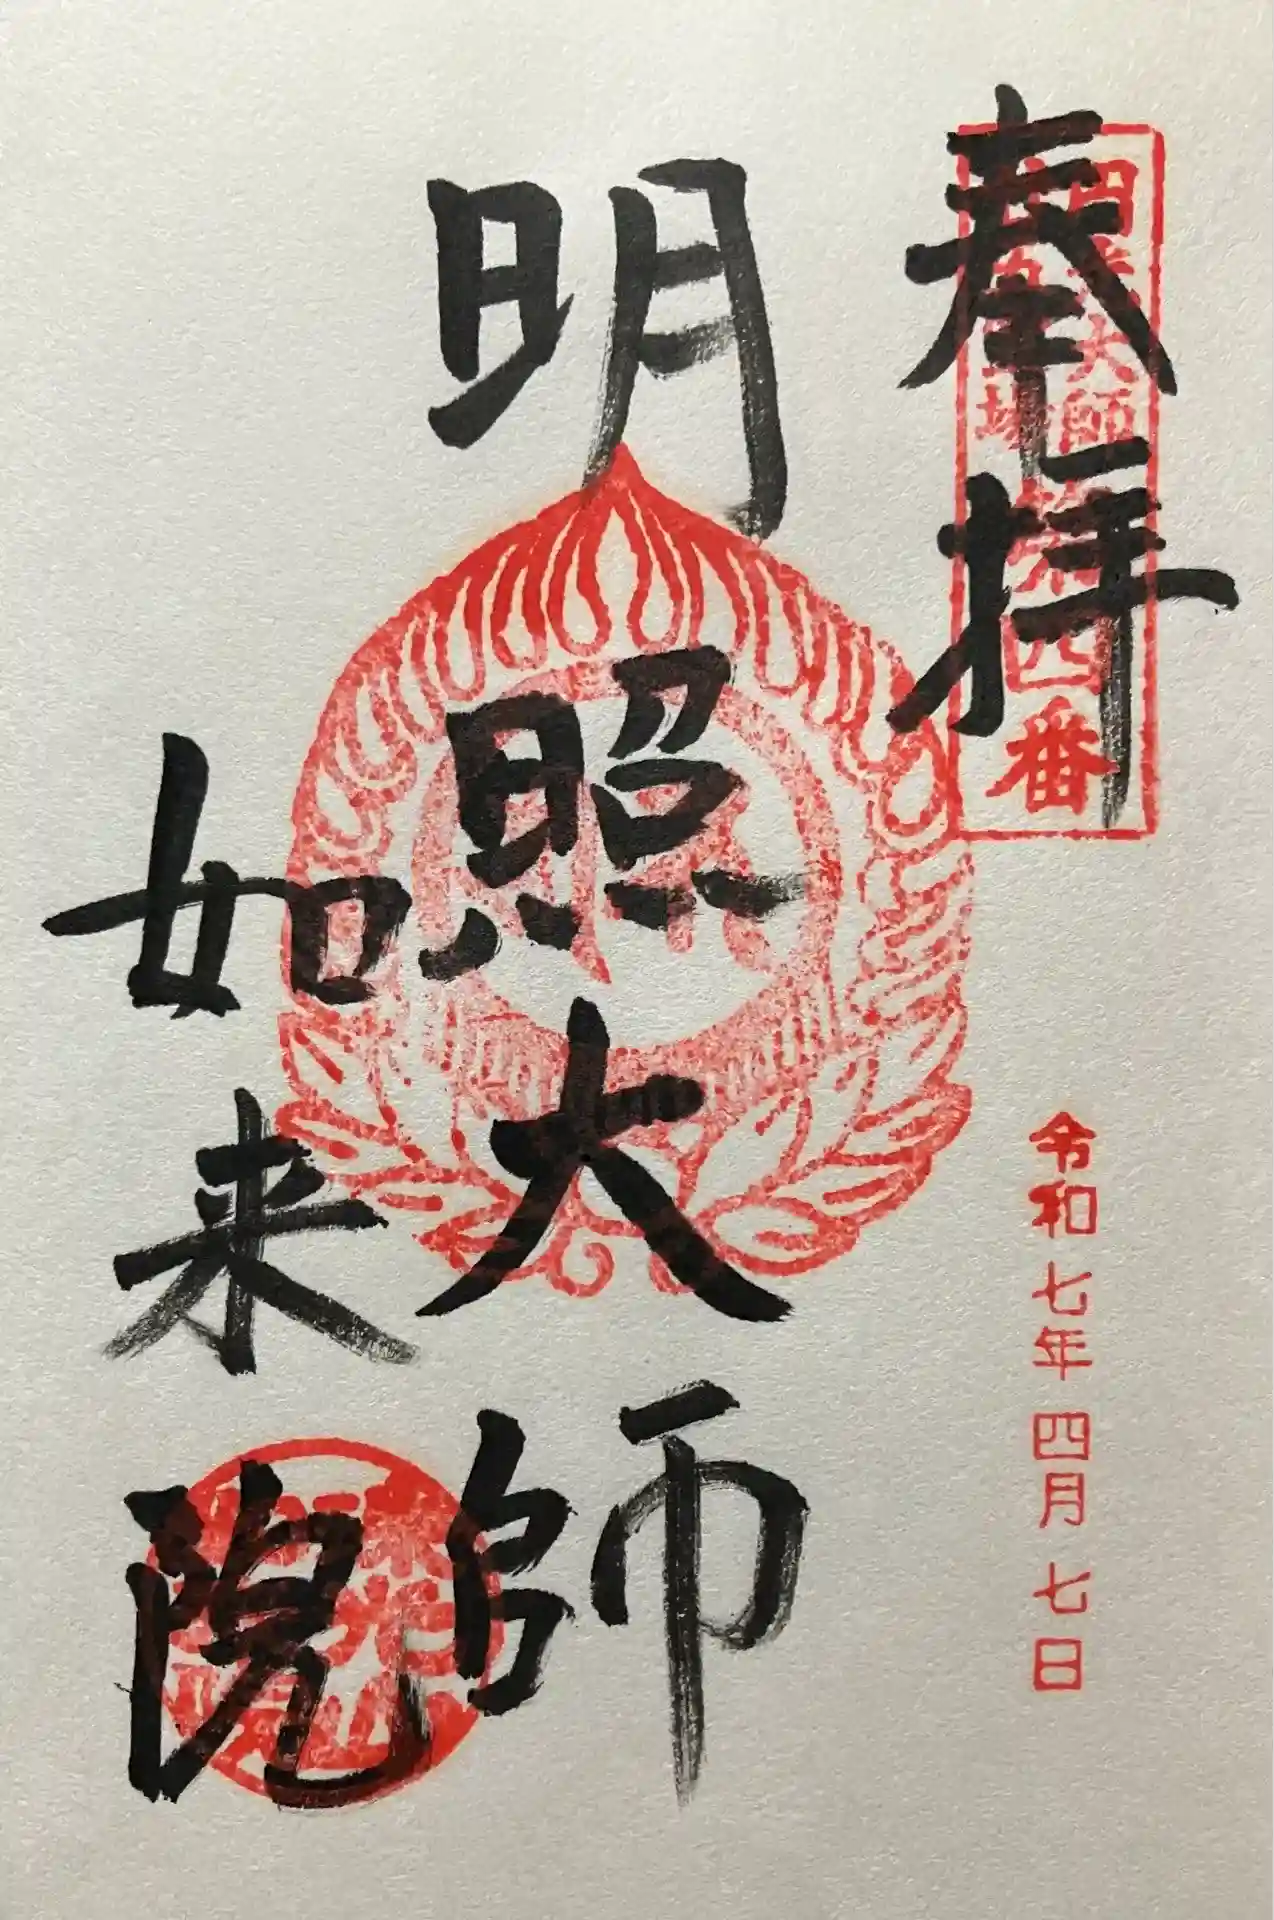 奉拝
円光大師
第四番
令和七年四月七日
明照大師
如来院